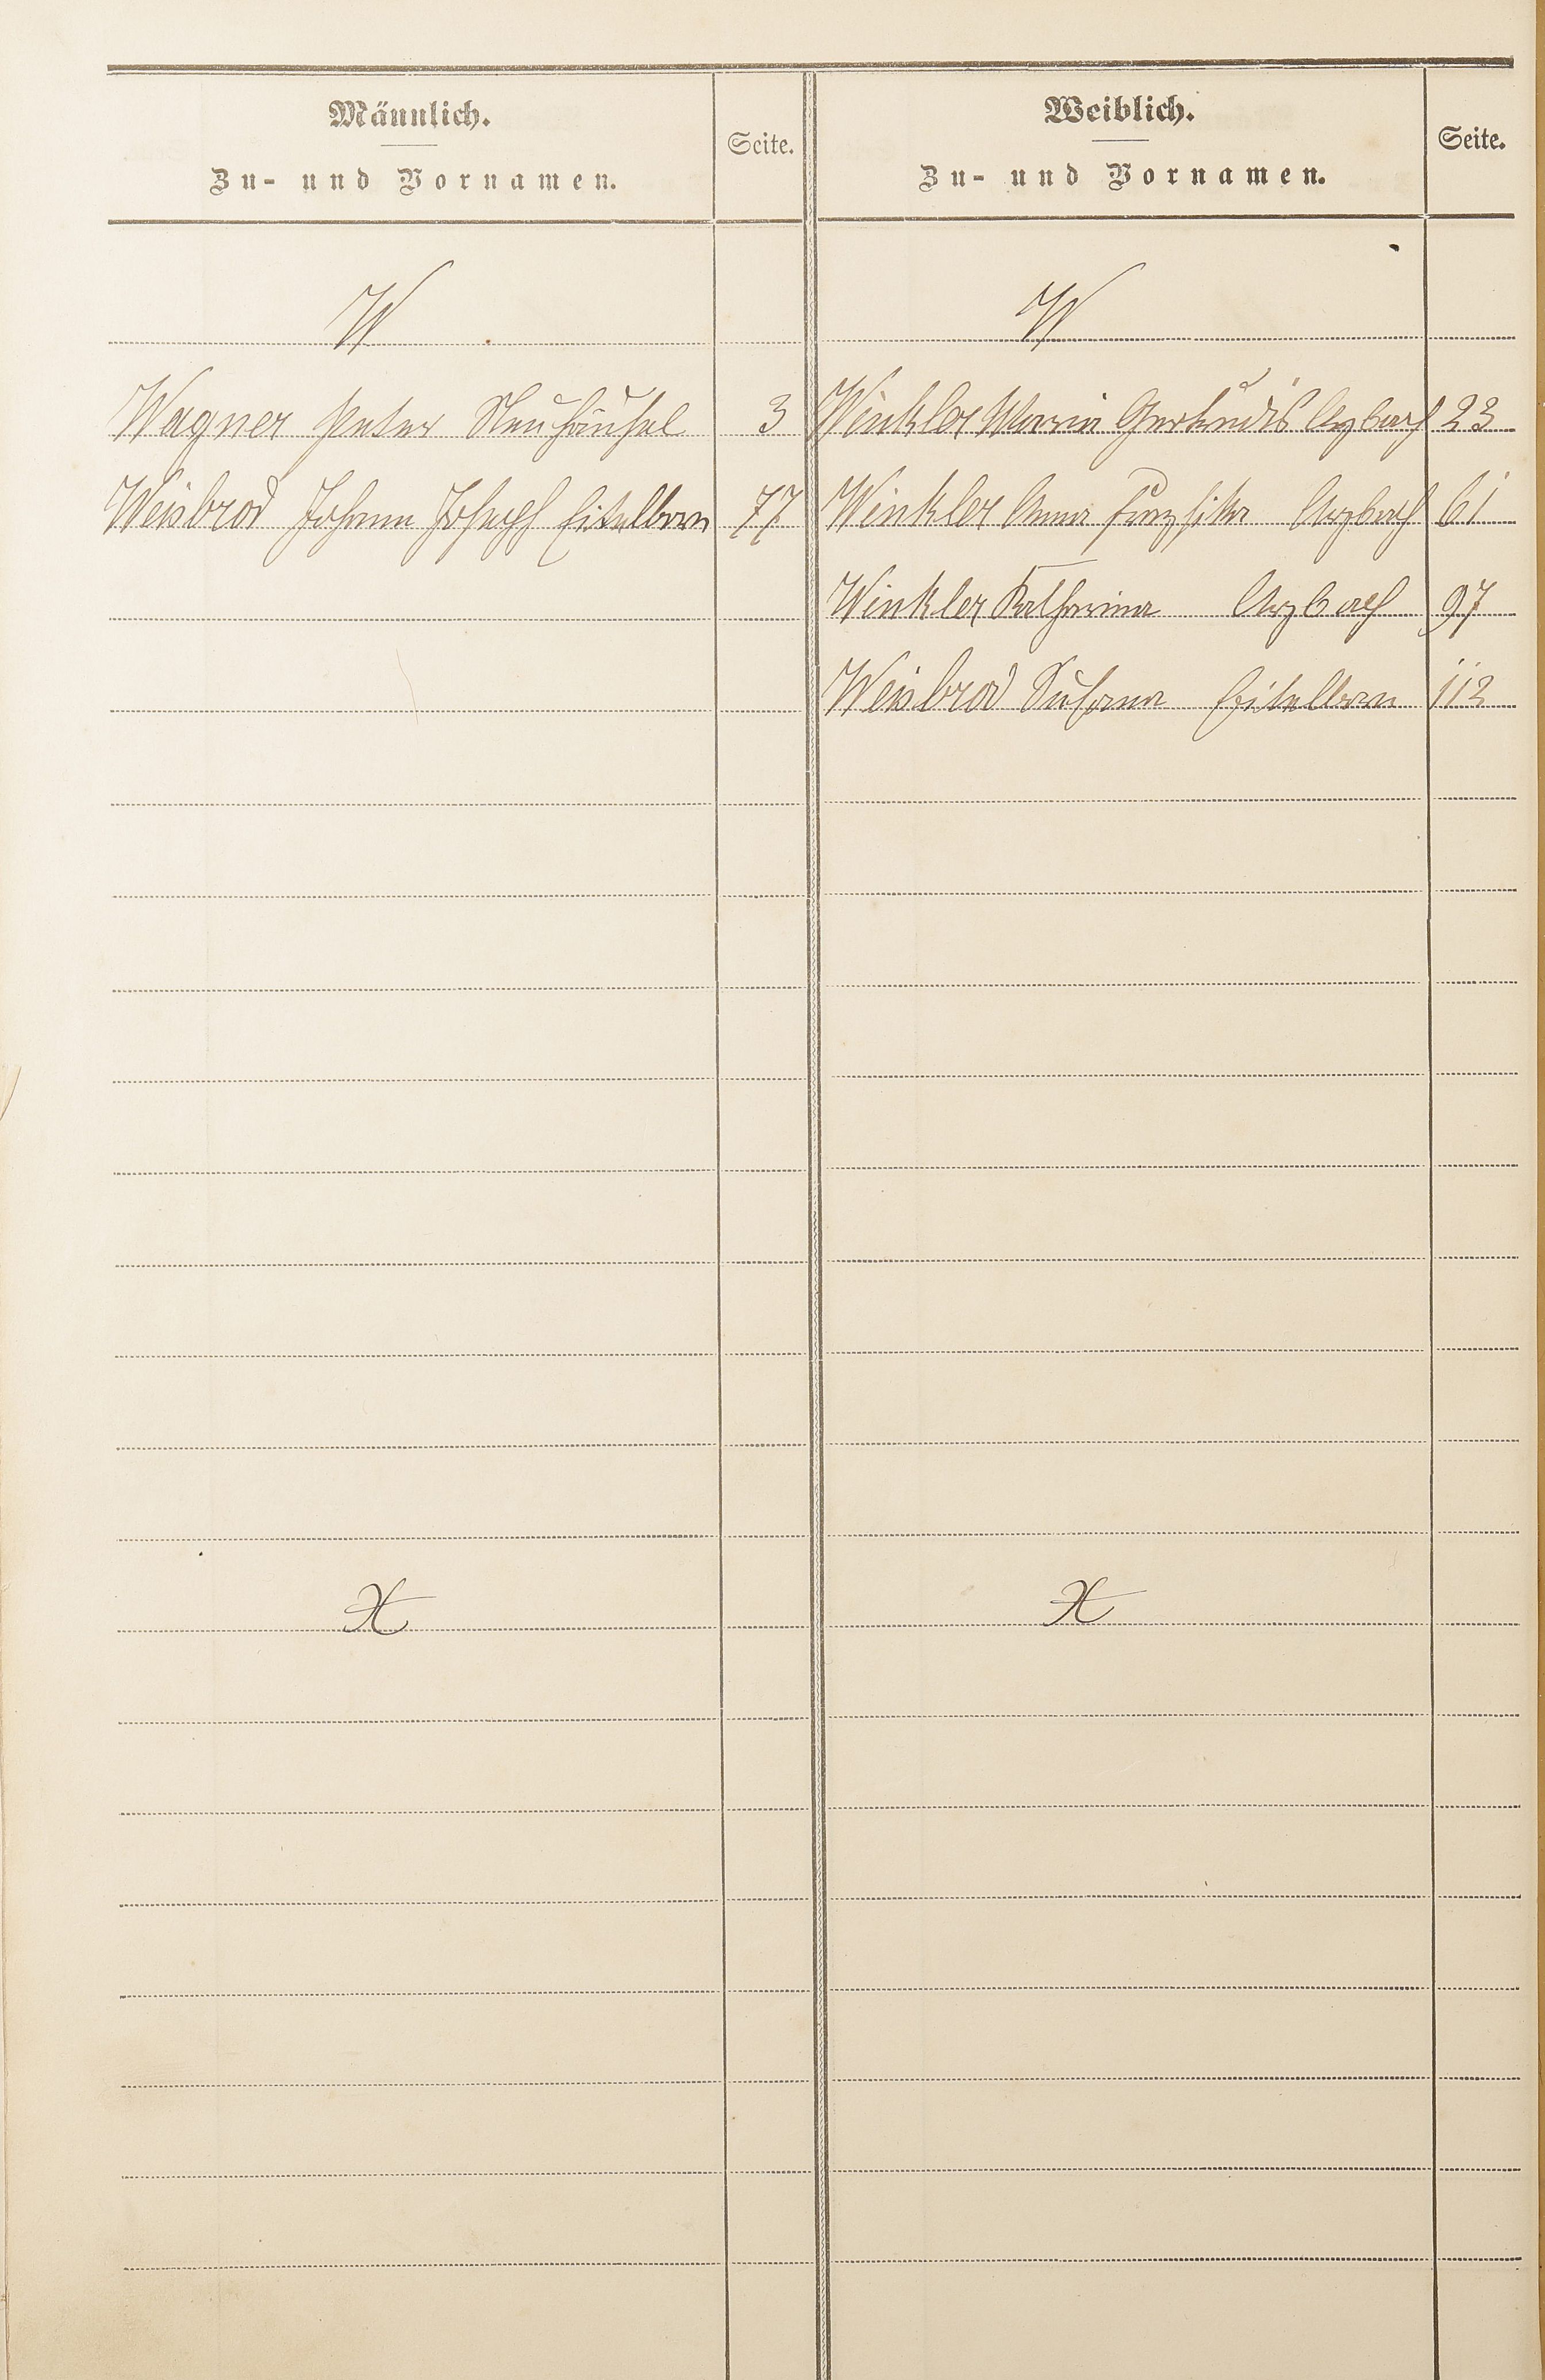 Männlich.
Zu- und Vornamen.
Seite.
Weiblich.
Zu- und Vornamen.
Seite.
W
W
Wagner Peter Neuhäusel 3
Winkler Maria Gertrudis Arzbach 23
Weisbrod Johann Joseph Eitelborn 77
Winkler Anna Arzbach 61
Winkler Katharina Arzbach 97
Weisbrod Susanna Eitelborn 112
X
X